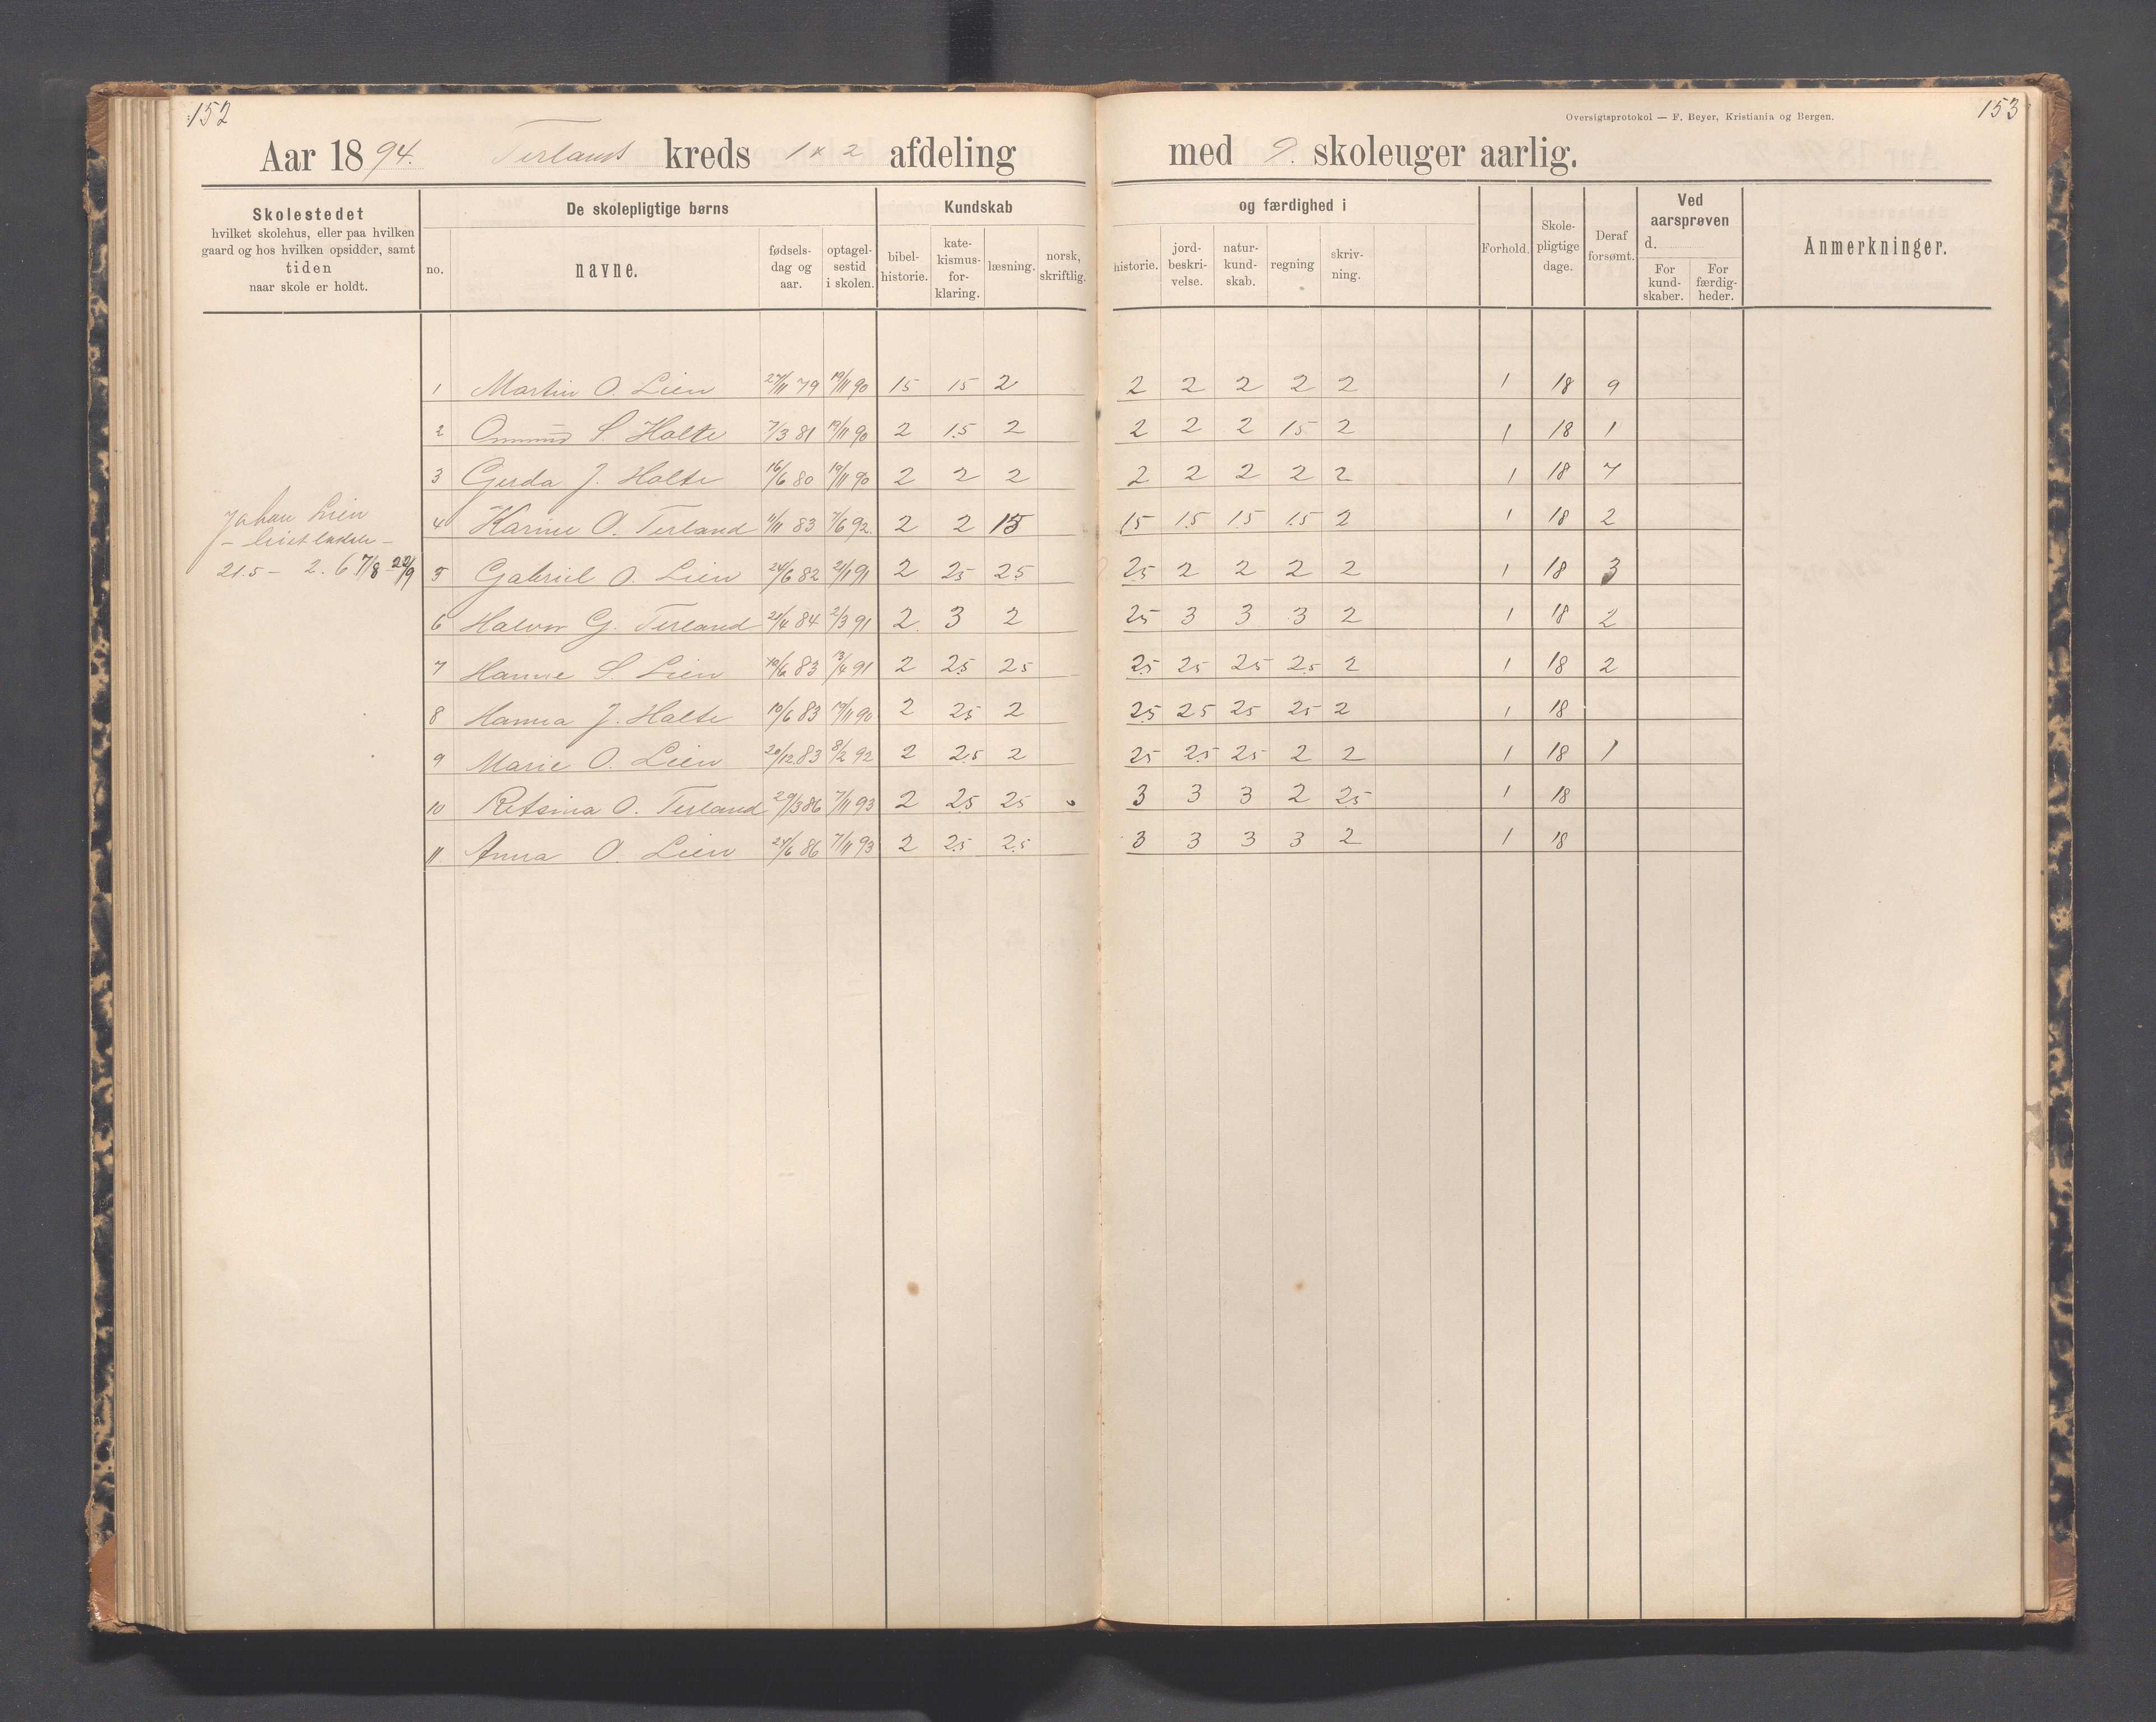 152
153
Oversigtsprotokol — F. Beyer, Kristiania og Bergen.
Aar 1894. Terlands kreds 1 x 2 afdeling med 9. skoleuger aarlig.
Skolestedet
hvilket skolehus, eller paa hvilken
gaard og hos hvilken opsidder, samt
tiden
naar skole er holdt.
De skolepligtige børns
no.
navne.
fødsels-
dag og
aar.
optagel-
sestid
i skolen.
Kundskab
bibel-
historie.
kate-
kismus-
for-
klaring.
læsning.
norsk,
skriftlig.
og færdighed i
historie.
jord-
beskri-
velse.
natur-
kund-
skab.
regning
skriv-
ning.
Forhold.
Skole-
pligtige
dage.
Deraf
forsømt.
Ved
aarsprøven
d.
For
kund-
skaber.
For
færdig-
heder.
Anmerkninger.
1 Martin O. Lien 27/11 79 19/11 90 15 15 2 2 2 2 2 2 1 18 9
2 Ommund S. Holte 7/3 81 19/11 90 2 1.5 2 2 2 2 15 2 1 18 1
3 Gerda J. Holte 16/6 80 19/11 90 2 2 2 2 2 2 2 2 1 18 7
Johan Lien
4 Karine O. Terland /11 83 7/6 92. 2 2 15 15 1.5 1.5 1.5 2 1 18 2
21.5 – 2.6 7/8 – 22/9
5 Gabriel O. Lien 24/6 82 2/1 91 2 25 25 25 2 2 2 2 1 18 3
6 Halvor G. Terland 21/4 84 2/3 91 2 3 2 25 3 3 3 2 1 18 2
7 Hanne S Lien 10/6 83 13/4 91 2 25 25 25 25 25 25 2 1 18 2
8 Hanna J. Holte 10/6 83 19/11 90 2 25 2 25 25 25 25 2 1 18
9 Marie O. Lien 20/12 83 8/2 92 2 2.5 2 25 25 25 2 2 1 18 1
10 Retsina O. Terland 29/3 86 7/11 93 2 25 25 3 3 3 2 25 1 18
11. Anna O. Lien 25/6 86 7/11 93 2 25 25 3 3 3 3 2 1 18